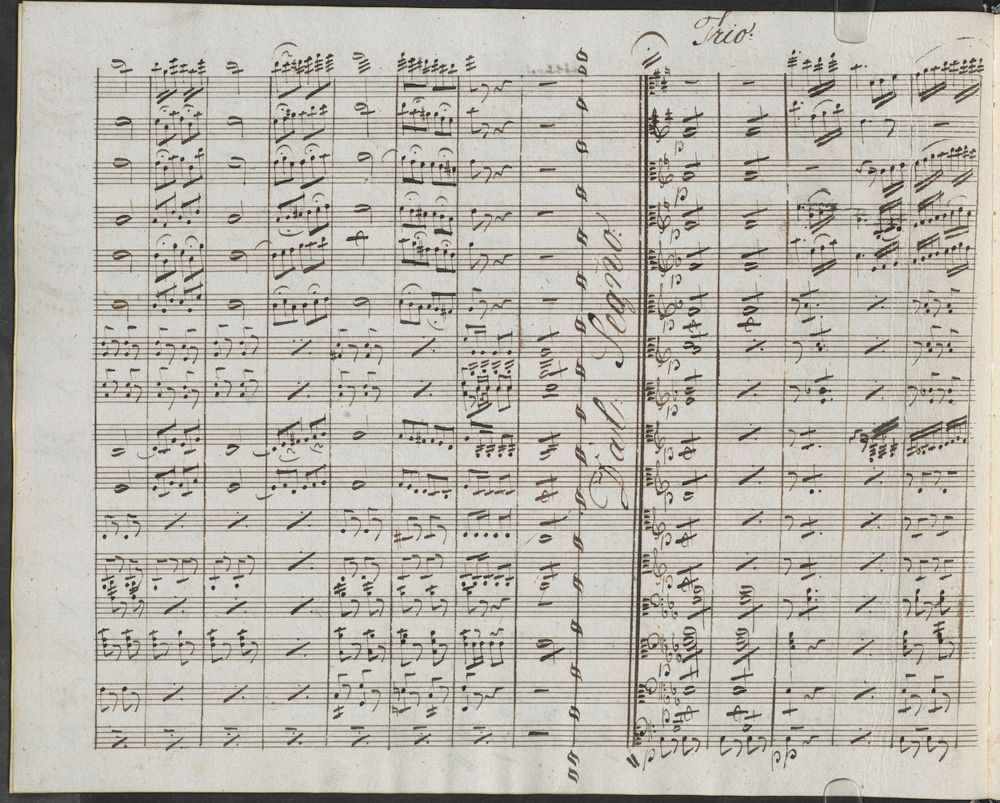 Trio.
Dal Segno